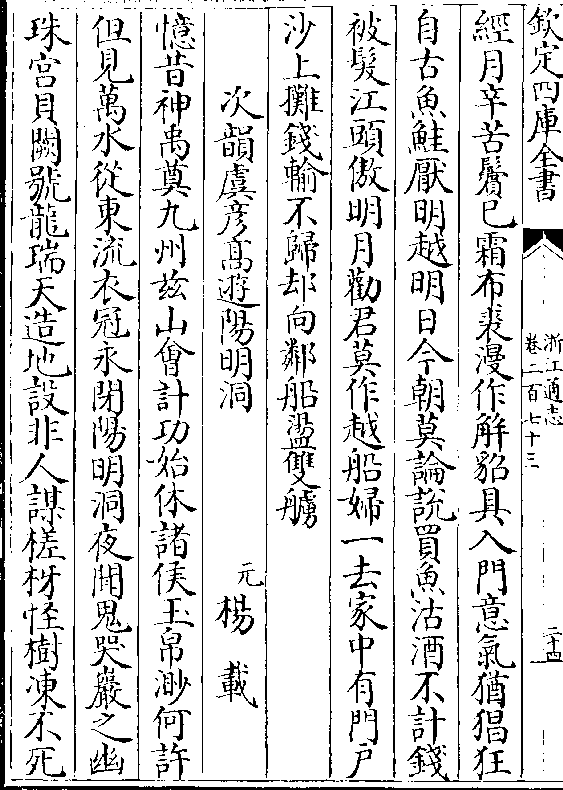 欽定四庫全書
浙江通志
卷二百七十三
二十四
經月辛苦鬢已霜布裘漫作解貂具入門意氣猶猖狂
自古魚鮭厭明越明日今朝莫論説買魚沽酒不計錢
被髪江頭傲明月勸君莫作越船婦一去家中有門戸
沙上攤錢輸不歸却向鄰船盪雙艣
次韻虞彦髙遊陽明洞
元楊載
憶昔神禹奠九州兹山會計功始休諸侯玉帛渺何許
但見萬水從東流衣冠永閉陽明洞夜開鬼哭巖之幽
珠宫貝闕號龍瑞天造地設非人謀槎枒怪樹凍不死